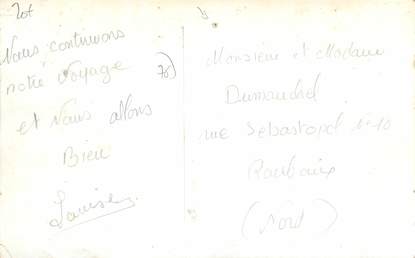 Lot
Nous continuons
notre voyage
et nous allons
Bien
Louise
78)
Monsieur et Madame
rue Sebastopol N° 10
Roubaix
(Nord)